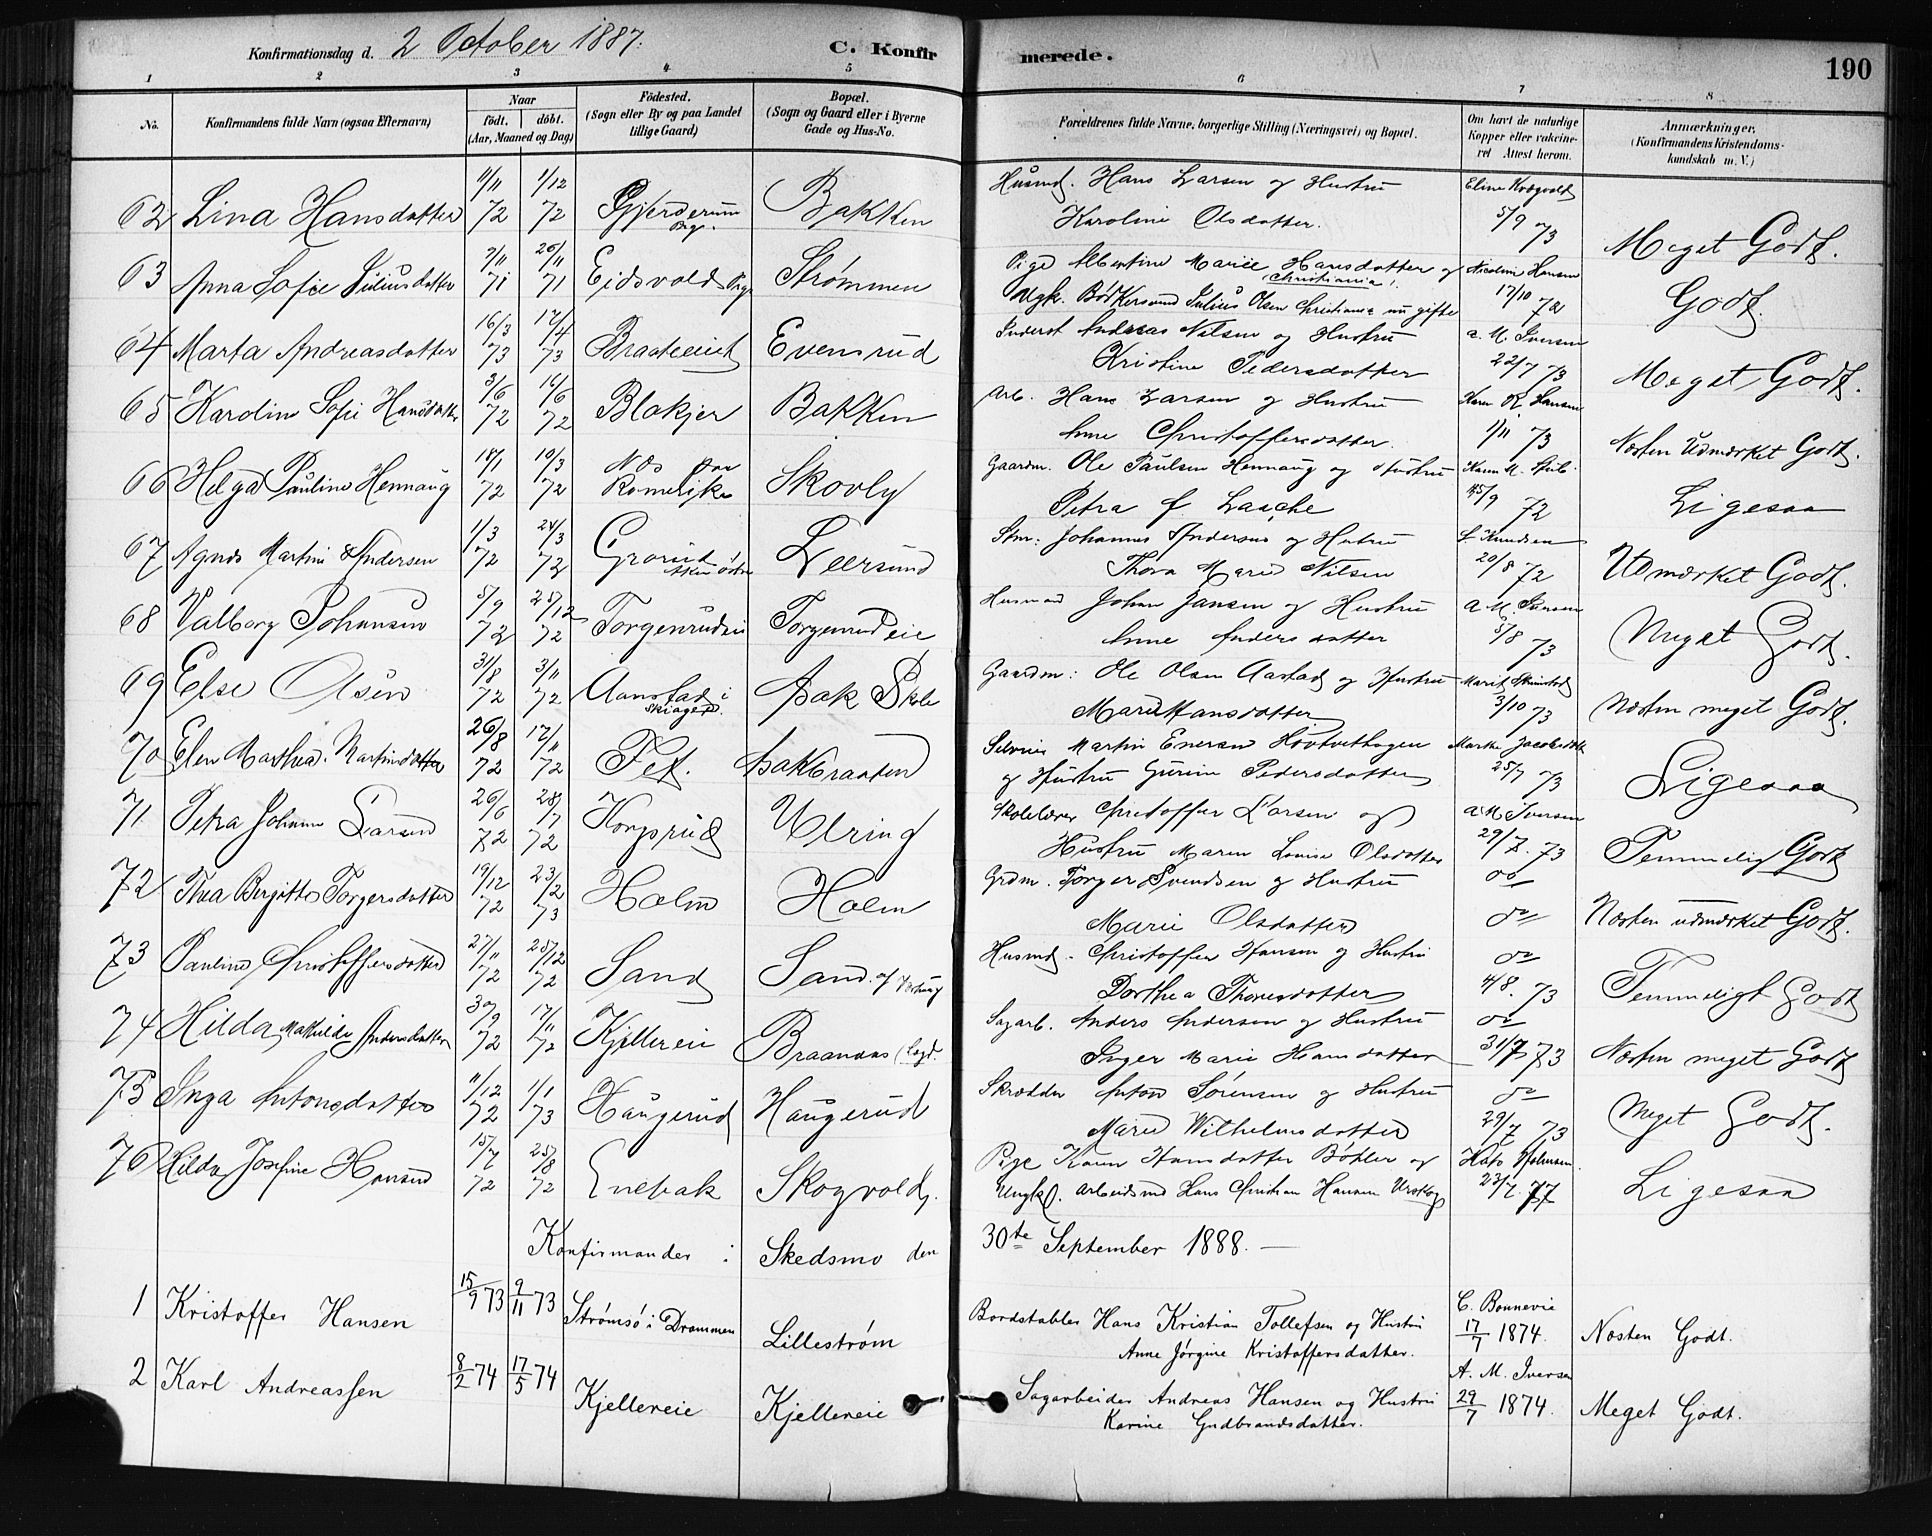 Konfirmationsdag d. 2 October 1887.
C. Konfir
merede.
190
1 2 3 4 5 6 7 8
No. Konfirmandens fulde Navn (ogsaa Efternavn) Naar født. døbt. (Aar, Maaned og Dag) Fødested. (Sogn eller By og paa Landet tillige Gaard) Bopæl. (Sogn og Gaard eller i Byerne Gade og Hus-No. Forældrenes fulde Navne, borgerlige Stilling (Næringsvei) og Bopæl. Om havt de naturlige Kopper eller vakcineret Attest herom. Anmærkninger. (Konfirmandens Kristendomskundskab m. V.)
62 Lina Hansdatter 11/11 72 1/12 72 Gjerderum Bakken Husmd. Hans Larsen og Hustru
Karoline Olsdatter. 5/9 73 Meget Godt.
63 Anna Sofie Juliusdatter 71 26/11 71 Eidsvold Strømmen Pige Albertine Marie Hansdatter og Nicoline Hansen
Ugk. Bødkersvend Julius Olsen Christiania nu gifte 17/10 72 Godt.
64 Marta Andreasdatter 16/3 73 17/4 73 Braateeiet Evensrud Inderst Andreas Nilsen og Hustru A. M. Iversen
Kristine Pedersdatter 22/7 73 Meget Godt.
65 Karolin Sofie Hansdatter 3/6 72 16/6 72 Blakjer Bakken Arb. Hans Larsen og Hustru Karen R. Hansen
Anne Christoffersdatter. 1/11 73 Næsten Udmærket Godt.
66 Helga Pauline Hennaug 18/1 72 10/3 72 Næs paa Romerike Skovly Gaardm. Ole Paulsen Hennaug og Hustru
Petra f. Lasche 72 Ligesaa
67 Agnes Martine Andersen 1/3 72 24/3 72 Grorud Leersund Johannes Andersen og Hustru L. Knudsen
Thora Marie Nilsen 20/8 72 Udmærket Godt.
68 Valborg Johansen 5/9 72 25/12 72 Torgenrudeie Torgenrudeie Husmand Johan Jansen og Hustru A. M. Iversen
Anne Andersdatter 5/8 73 Meget Godt.
69 Else Olsen 31/8 72 3/11 72 Aanstad i Skiager Aak Skole Gaardm: Ole Olsen Aastad og Hustru
Marit Hansdatter 3/10 73 Næsten meget Godt.
70 Elen Marthea Martinsdatter 26/8 72 17/11 72 Fet. Aakbraaten Selveier Martin Enersen Hovtvethagen Marthe Jacobsdtr
og Hustru Gurine Pedersdatter 25/7 73 Ligesaa
71 Petra Johanne Larsen 26/6 72 28/7 72 Korgsrud Ulring Skolelærer Christoffer Larsen og A M Iversen
Hustru Maren Lovise Olsdatter 29/7. 73 Temmelig Godt
72 Thea Bergitte Torgersdatter 19/12 72 23/2 73 Holm Holm Grdm. Torger Svendsen og Hustru do
Marie Olsdatter do Næsten udmærket Godt.
73 Pauline Christoffersdatter 27/11 72 25/12 72 Sand Sand Husmd. Christoffer Hansen og Hustru do
Dorthea Thoresdatter 4/8. 73 Temmeligt Godt
74 Hilda Mathilde Andersdatter 30/9 72 17/11 72 Kjellereie Braanaas Sagarb. Anders Andersen og Hustru do
Inger Marie Hansdatter 31/7 73 Næsten meget Godt
75 Inga Antonsdatter 11/12 72 1/1 73 Haugerud Haugerud Skrædder Anton Sørensen og Hustru do
Marie Wilhelmsdatter 29/7 73 Meget Godt.
76 Hilda Josefine Hansen 15/7 72 25/8 72 Enebak Skogvold. Pige Karen Hansdatter Bøhler og
Ungk. Arbeidsmd Hans Christian Hansen Urskog 23/7 77 Ligesaa
Konfirmander i Skedsmo den 30te September 1888. —
1 Kristoffer Hansen 15/9 73 9/11 73 Strømsø i Drammen Lillestrøm Bordstabler Hans Kristian Tollefsen og Hustru C. Bonnevie
Anne Jørgine Kristoffersdatter. 17/7 1874. Næsten Godt.
2 Karl Andreassen 8/2 74 17/5 74 Kjellereie Kjellereie Sagarbeider Andreas Hansen og Hustru A. M. Iversen
Karine Gudbrandsdatter. 29/7 1874. Meget Godt.